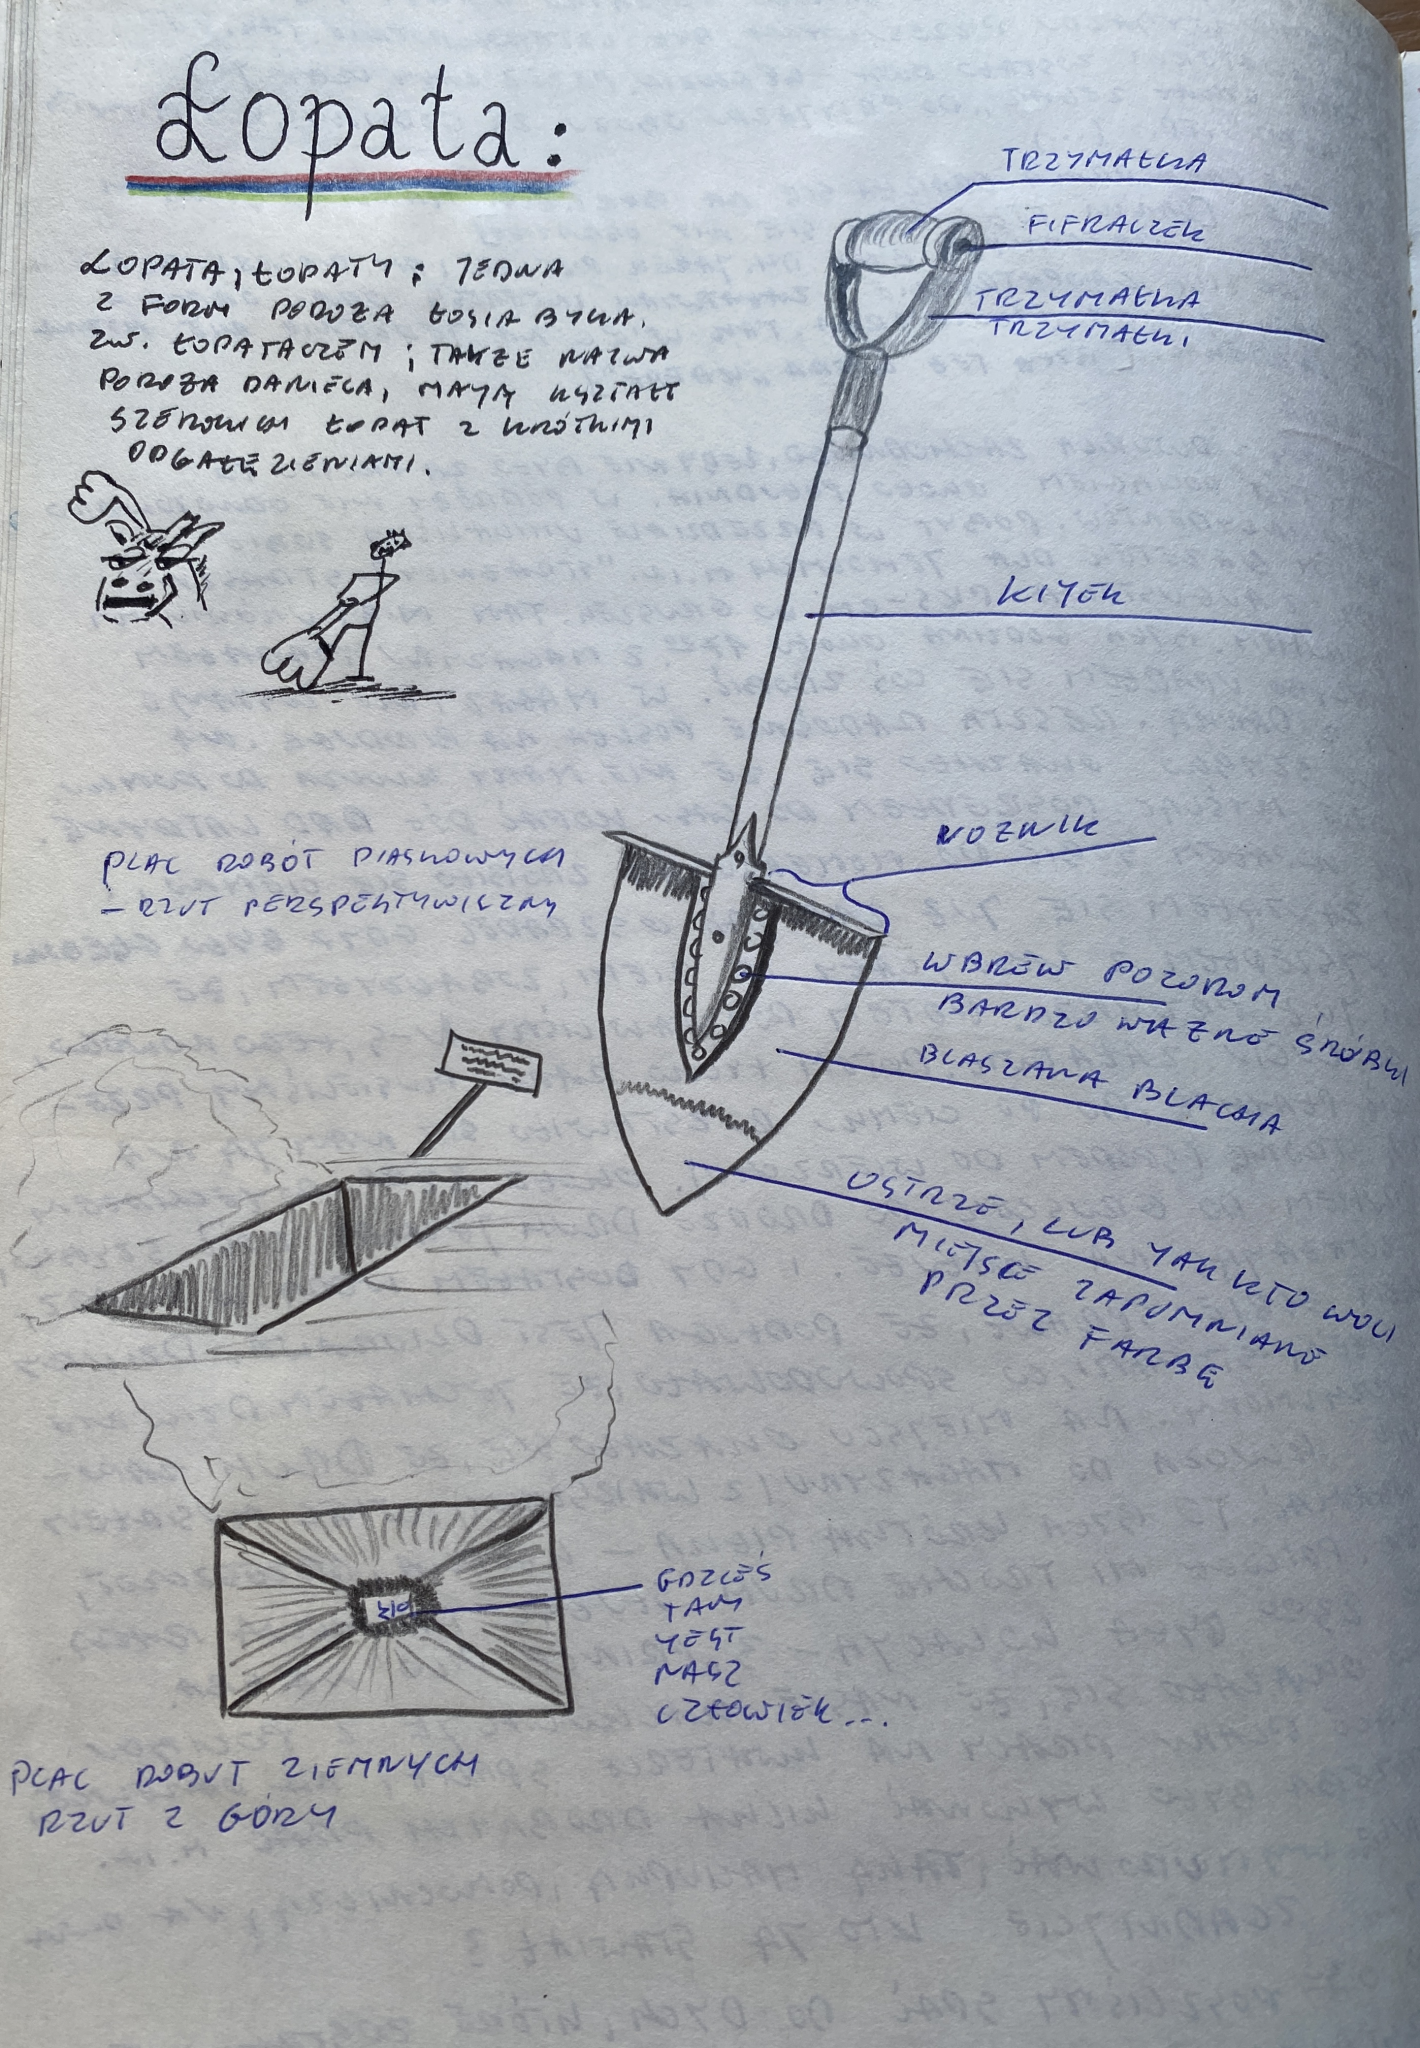 Łopata:
ŁOPATA, ŁOPATY; JEDNA
Z FORM POROŻA ŁOSIA BYKA.
ZW. ŁOPATACZEM; TAKŻE NAZWA
POROŻA DANIELA, MAJĄ KSZTAŁT
SZEROKICH ŁOPAT Z KRÓTKIMI
ODGAŁĘZIENIAMI.
TRZYMAŁKA
FIFRACZEK
TRZYMAŁKA
TRZYMAŁKI
KIYEK
NOZNIK
WBREW POZOROM
BARDZO WAŻNE ŚRÓBKI
BLASZANA BLACHA
OSTRZE, LUB YAK KTO WOLI
MIEJSCE ZAPOMNIANE
PRZEZ FARBĘ
PLAC ROBÓT PIASKOWYCH
– RZUT PERSPEKTYWICZNY
GDZIEŚ
TAM
YEST
NASZ
CZŁOWIEK...
PLAC ROBUT ZIEMNYCH
RZUT Z GÓRY